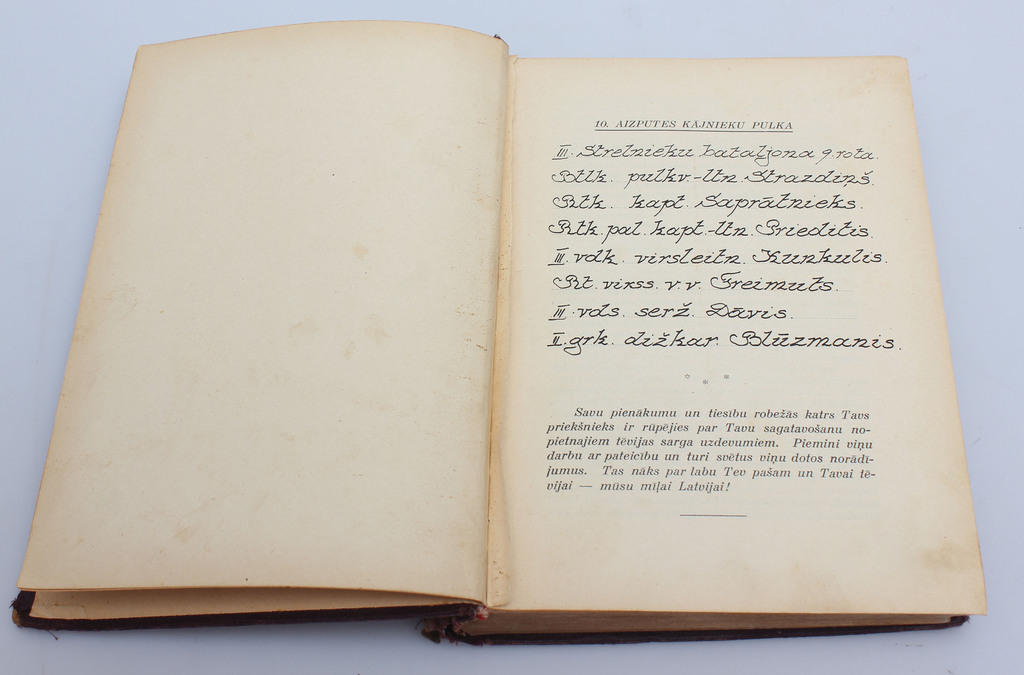 10. AIZPUTES KĀJNIEKU PULKA
III. Strelnieku bataljona 9. rota.
Btlk. pulkv.-ltn. Strazdiņš.
Rtk. kapt. Saprātnieks.
Rtk. pal. kapt.-ltn. Priedītis.
III. vdk. virsleitn. Kunkulis.
Rt. virss. v. v. Freimuts.
III. vds. serž. Dāvis.
II. grk. dižkar. Blūzmanis.
* * *
Savu pienākumu un tiesību robežās katrs Tavs
priekšnieks ir rūpējies par Tavu sagatavošanu no-
pietnajiem tēvijas sarga uzdevumiem. Piemini viņu
darbu ar pateicību un turi svētus viņu dotos norādī-
jumus. Tas nāks par labu Tev pašam un Tavai tē-
vijai — mūsu mīļai Latvijai!